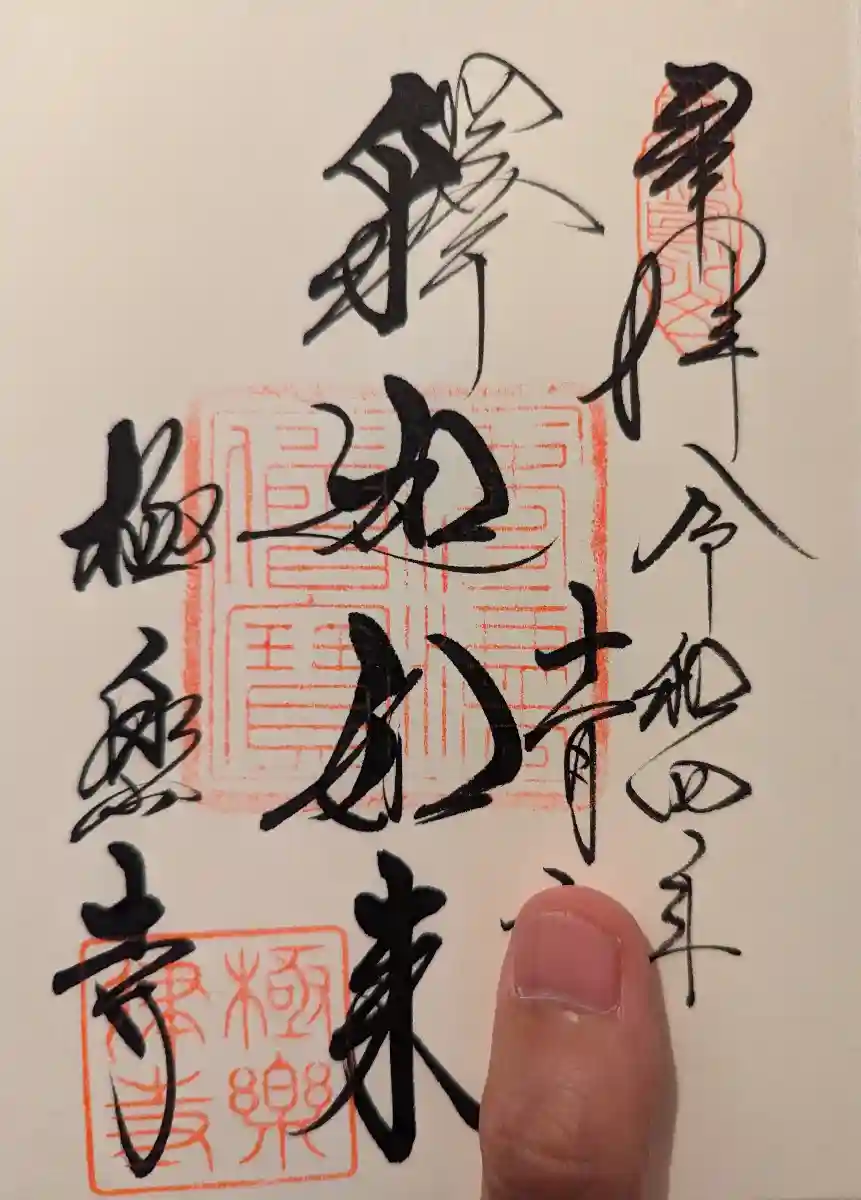 奉拝
令和四年
十一月
釋迦如来
極楽寺
極樂
律寺